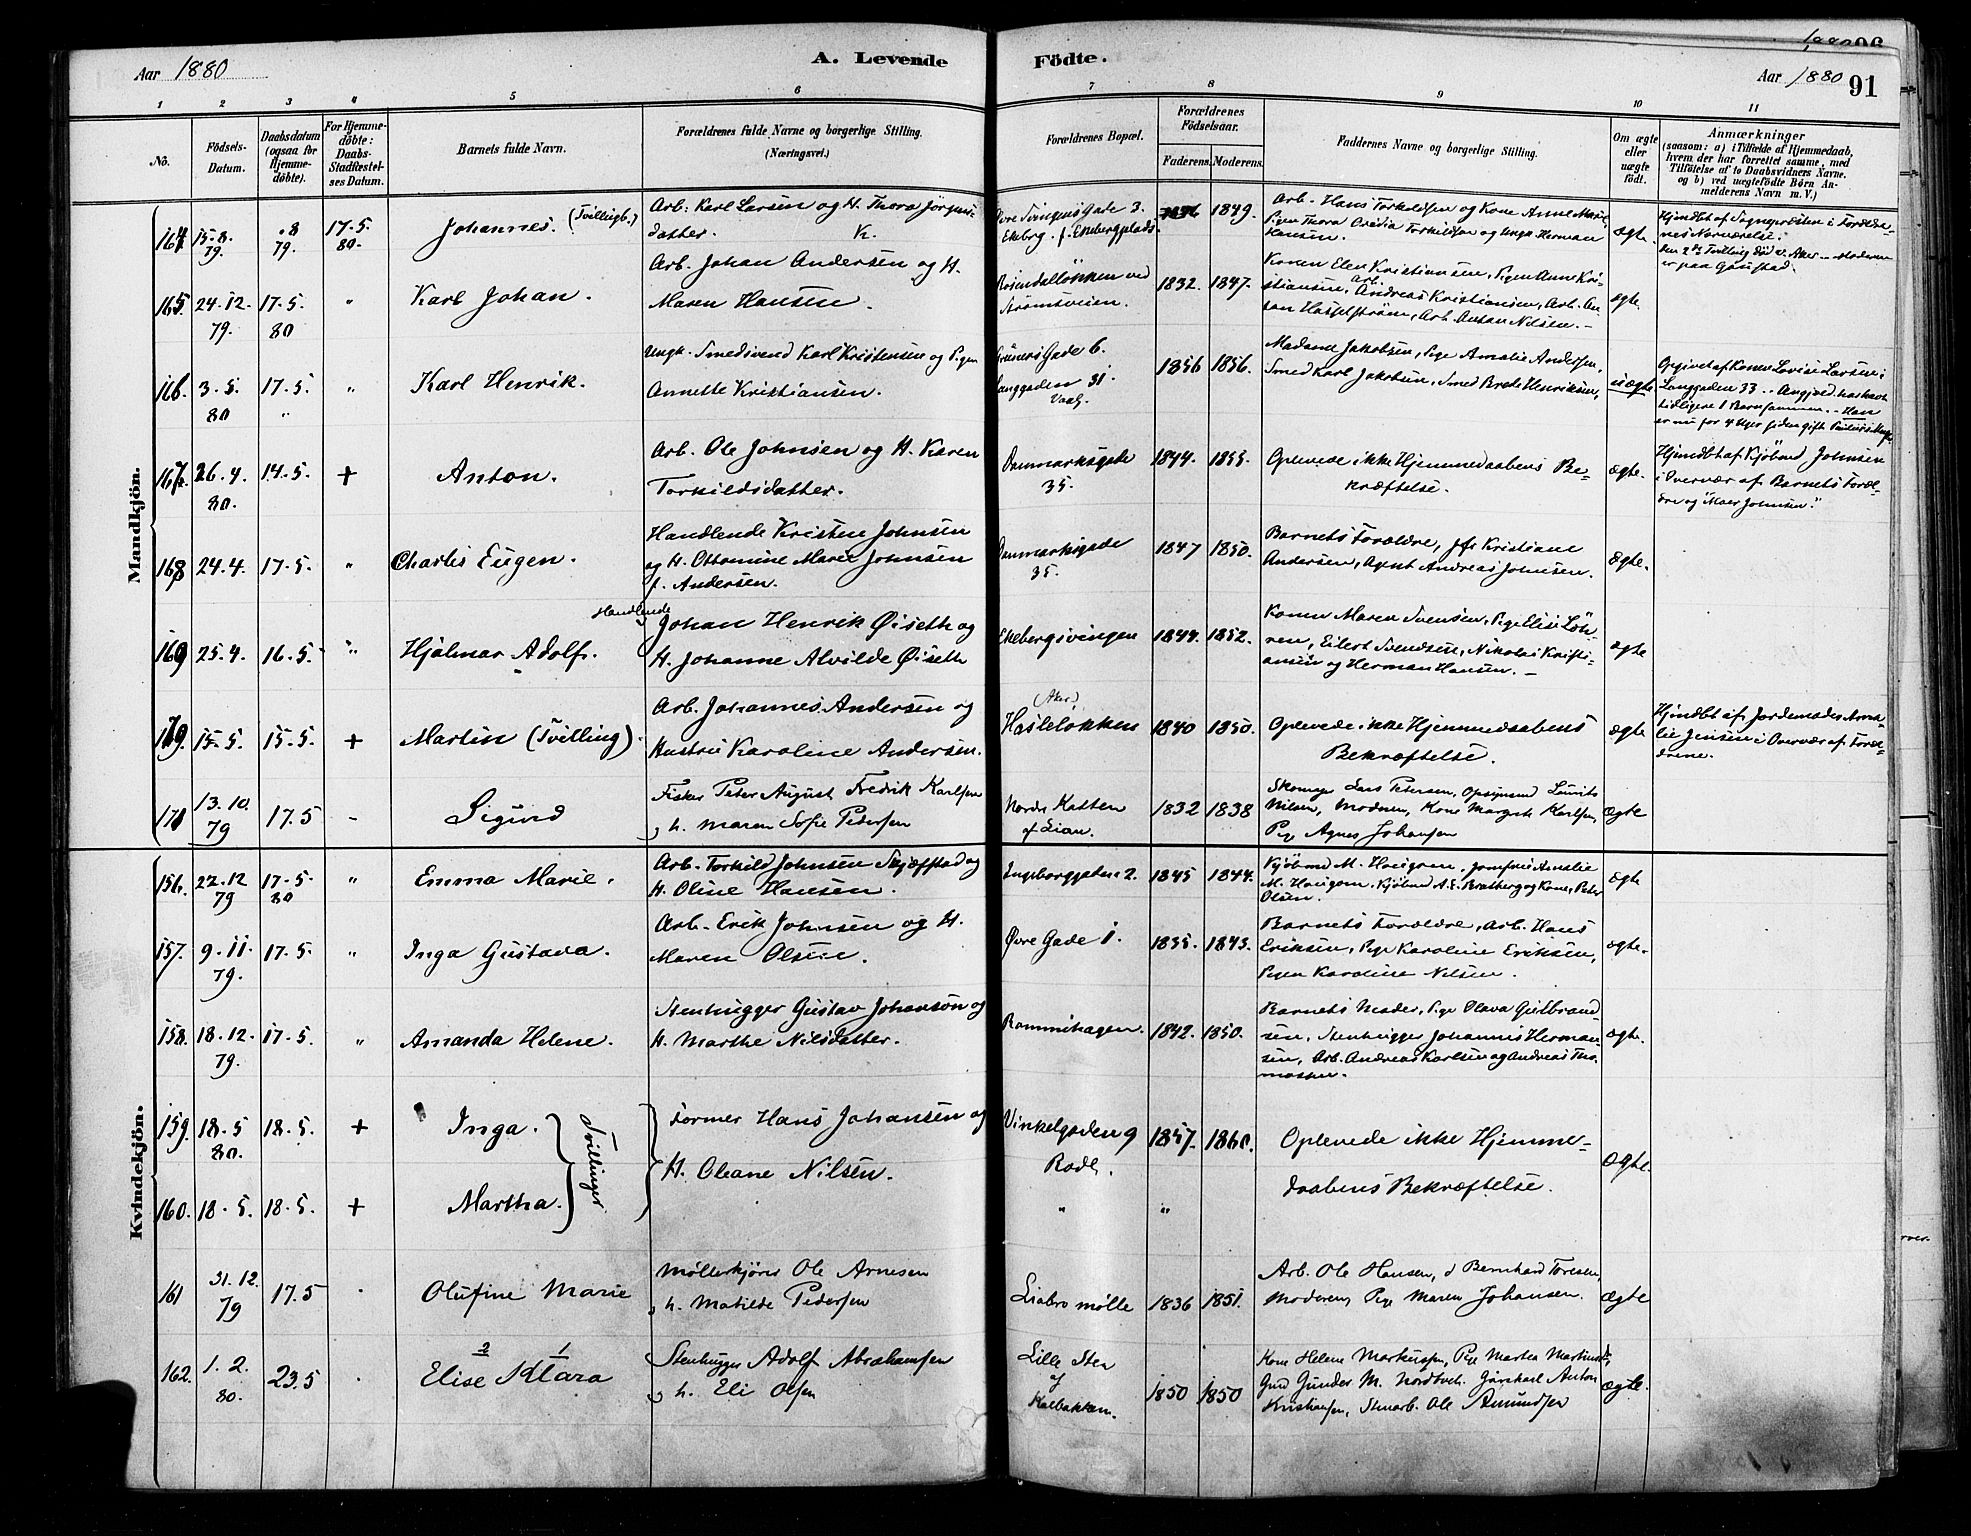 Aar 1880
A. Levende Födte.
Aar 1880 91
1 2 3 4 5 6 7 8 9 10 11
No.
Födsels-
Datum.
Daabsdatum
(ogsaa for
Hjemme-
döbte).
For Hjemme-
döbte:
Daabs-
Stadfæstel-
ses Datum.
Barnets fulde Navn.
Forældrenes fulde Navne og borgerlige Stilling.
(Næringsvei.)
Forældrenes Bopæl.
Forældrenes
Födselsaar.
Faderens. Moderens.
Faddernes Navne og borgerlige Stilling.
Om ægte
eller
uægte
födt.
Anmærkninger
(saasom: a) i Tilfælde af Hjemmedaab,
hvem der har forrettet samme, med
Tilföielse af to Daabsvidners Navne,
og b) ved uægtefödte Börn An-
melderens Navn m. V.)
Mandkjön.
164. 15.8. 79. .8 79. 17.5. 80. Johannes. (Tvillingb.)
Arb. Karl Larsen og H. Thora Jörgens-
datter.
Ekebrg. f. Ekebergplads.
1849.
Arb. Hans Torkildsen og Kone Anne Marie,
Pigen Thora Torkildsen og Ungk. Herman
Hansen.
ægte.
Hjmdbt af Sognepræsten i Foræld-
nes Nærværelse.
er paa Gaustad.
165. 24.12. 79. 17.5. 80 " Karl Johan.
Arb. Johan Andersen og H.
Maren Hansen.
Rosendallökken ved
Strömsveien.
1832. 1847.
Konen Elen Kristiansen, Pigen Anne Kri-
stiansen, Arb. Andreas Kristiansen, Arb. An-
ton Hasselström, Arb. Anton Nilsen.
ægte.
166. 3.5. 80 17.5. " Karl Henrik.
Ungk. Smedsvend Karl Kristensen og Pigen
Annette Kristiansen.
Grüners Gade 6.
Langgaden 31.
Vaalg.
1856 1856.
Madame Jakobsen, Pige Amalie Andersen,
Smed Karl Jakobsen, Smed Brede Henriksen,
uægte
Opgivet af Konen Lovise Larsen i
Langgaden 33.
167. 26.4. 80. 14.5. + Anton.
Arb. Ole Johnsen og H. Karen
Torkildsdatter.
Danmarksgade
35.
1844. 1855.
Oplevede ikke Hjemmedaabens Be-
kræftelse.
ægte.
Hjmdbt af Kjöbmd Johnsen
i Overvær af Barnets Foræl-
dre og "Moer Johnsen."
168 24.4. 17.5. " Charles Eugen.
Handlende Kristen Johnsen
og H. Ottomine Marie Johnsen
f. Andersen.
Danmarksgade
35.
1847 1850.
Barnets Forældre, Jfr Kristiane
Andersen, Agent Andreas Johnsen.
ægte.
169 25.4. 16.5. " Hjalmar Adolf.
Handlende
Johan Henrik Öiseth og
H. Johanne Alvilde Öiseth
Ekebergsvingen
1844. 1852.
Konen Maren Svensen, Pige Elise Löh-
ren, Eilert Svendsen, Nikolai Kristi-
ansen og Herman Hansen.
ægte
170. 15.5. 15.5. + Martin (Tvilling).
Arb. Johannes Andersen og
Hustru Karoline Andersen.
(Aker)
Haslelökken
1840 1850.
Oplevede ikke Hjemmedaabens
Bekræftelse.
ægte
Hjmdbt af Jordemoder Ama-
lie Jensen i Overvær af Foræl-
drene.
171 13.10. 79 17.5 - Sigurd
Fisker Peter August Fredrik Karlsen
og h. Maren Sofie Pedersen
Nordre Katten
af Lian.
1832 1838
Skomager Lars Petersen, Opsynsmd Laurits
Nilsen, Moderen, Kone Margrete Karlsen,
Pige Agnes Johansen
ægte
Kvindekjön.
156. 22.12 79 17.5. 80 " Emma Marie.
Arb. Torkild Johnsen Skjæfstad og
H. Oline Hansen.
Ingeborggaden 2.
1845 1844.
Kjöbmd M. Haugom, Jomfru Amalie
M. Haugom, Kjöbmd A.E. Bratberg og Kone, Peter
Olsen.
ægte
157. 9.11. 79. 17.5. " Inga Gustava.
Arb. Erik Johnsen og H.
Maren Olsen.
Övre Gade 1.
1835. 1843.
Barnets Forældre, Arb. Hans
Eriksen, Pige Karoline Eriksen,
Pigen Karoline Nilsen.
ægte.
158. 18.12. 79. 17.5. " Amanda Helene.
Stenhugger Gustav Johanson og
H. Marthe Nilsdatter.
Bommihagen.
1842. 1850.
Barnets Moder, Pige Olava Gulbrand-
sen, Stenhugger Johannes Herman-
sen, Arb. Andreas Karlsen og Andreas Tho-
massen.
ægte.
159. 18.5 80. 18.5. + Inga.
Tvillinger
Former Hans Johansen og
H. Oleane Nilsen.
Vinkelgaden 9
Rodl.
1857. 1860.
Oplevede ikke Hjemme-
daabens Bekræftelse.
ægte.
160. 18.5. 18.5. + Martha. " "
161 31.12. 79 17.5 . Olufine Marie
Möllerkjörer Ole Arnesen
og h. Matilde Pedersen
Liabro mölle
1836 1851.
Arb. Ole Hansen, d Bernhard Toresen,
Moderen, Pige Maren Johansen.
ægte
162. 1.2. 80. 23.5 .
2 1
Elise Klara
Stenhugger Adolf Abrahamsen
og h. Eli Olsen
Lille Sten
af
Kalbakken.
1850 1850
Kone Helene Markussen, Pige Martea
Gunder M. Nordtvet, Anton
Kristiansen, Stenarb. Ole Amundsen
ægte.